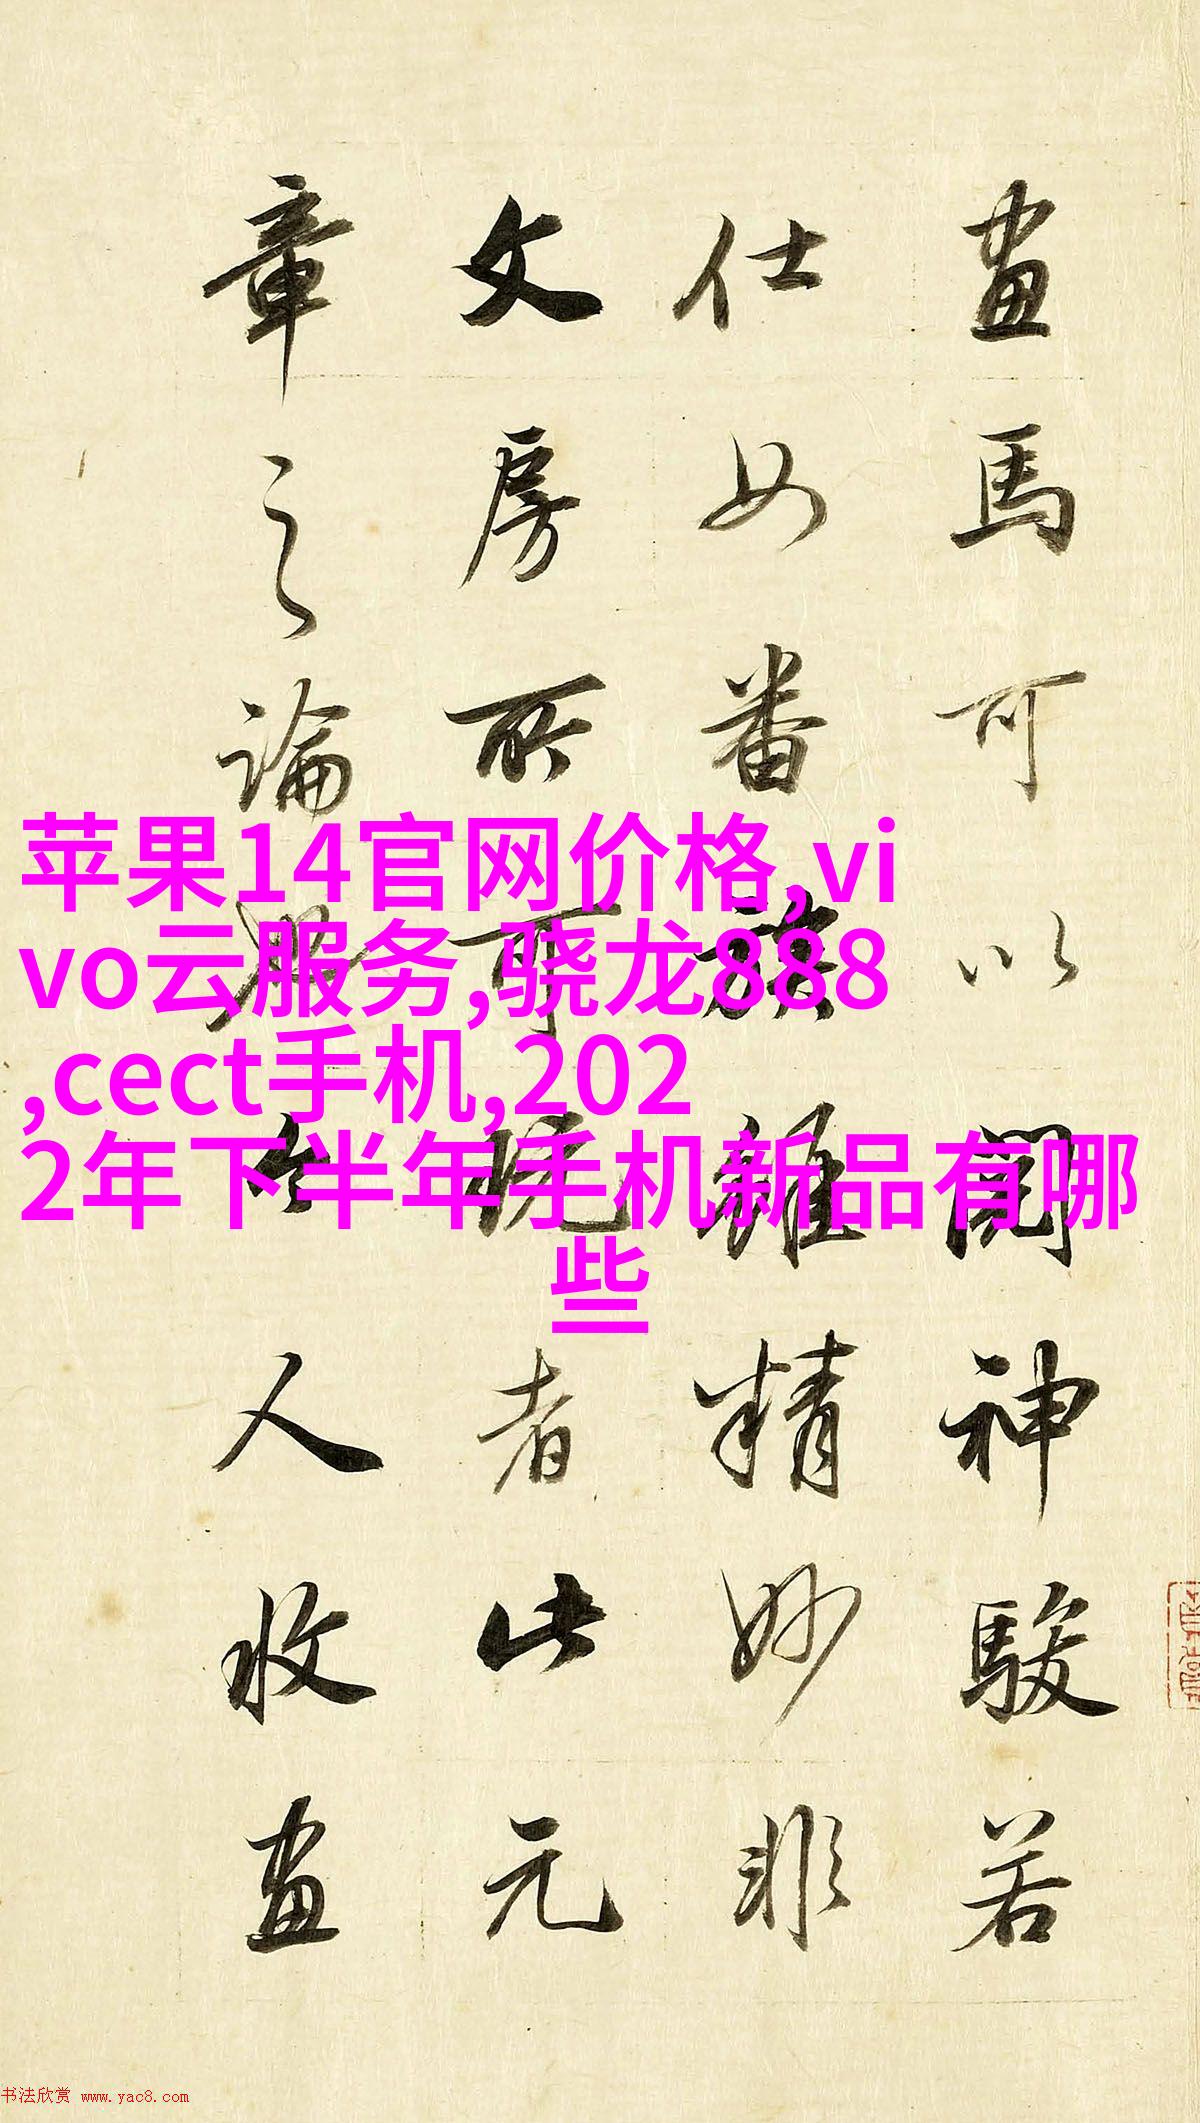 畫馬可以閱神駿若
仕女番族雖精妙非
文房所可玩者此元
章之論
人收畫
苹果14官网价格,vi
vo云服务,骁龙888
,cect手机,202
2年下半年手机新品有哪
些
书法欣赏 www.yac8.com